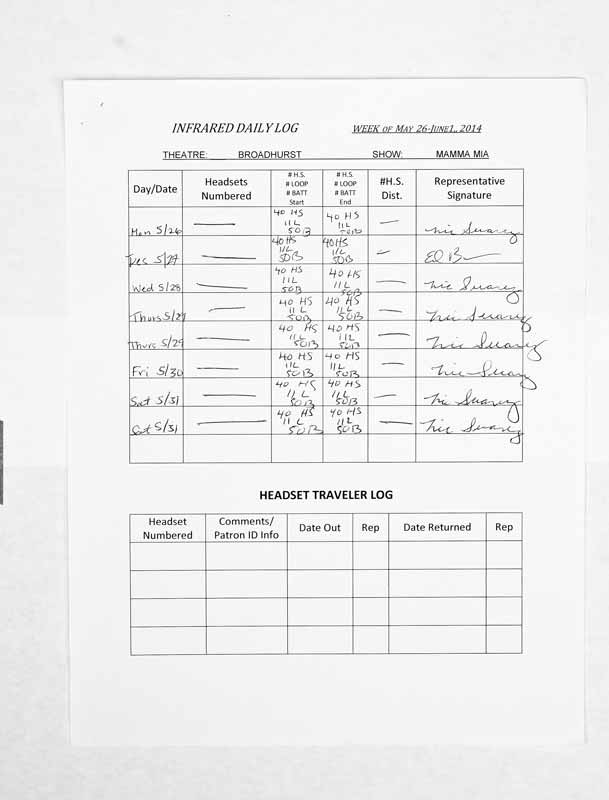 INFRARED DAILY LOG WEEK OF MAY 26-JUNE1,, 2014
THEATRE: BROADHURST SHOW: MAMMA MIA
Day/Date Headsets Numbered # H.S. # LOOP # BATT Start # H.S. # LOOP # BATT End #H.S. Dist. Representative Signature
Mon 5/26 — 40 HS 11L 50B 40 HS 11L 50B — Nic Suarez
Tues 5/27 — 40HS 11L 50B 40HS 11L 50B — Ed B
Wed 5/28 — 40 HS 11L 50B 40 HS 11L 50B — Nic Suarez
Thurs 5/29 — 40 HS 11L 50B 40 HS 11L 50B — Nic Suarez
Thurs 5/29 — 40 HS 11L 50B 40 HS 11L 50B — Nic Suarez
Fri 5/30 — 40 HS 11L 50B 40 HS 11L 50B — Nic Suarez
Sat 5/31 — 40 HS 11L 50B 40 HS 11L 50B — Nic Suarez
Sat 5/31 — 40 HS 11L 50B 40 HS 11L 50B — Nic Suarez
HEADSET TRAVELER LOG
Headset Numbered Comments/ Patron ID Info Date Out Rep Date Returned Rep